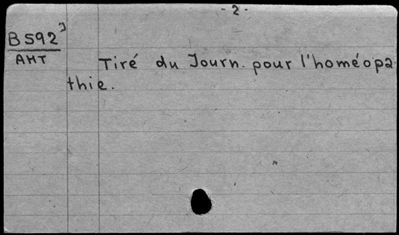 - 2 -
B 592 J
AHT
Tiré du Journ. pour l'homéopa
thie.